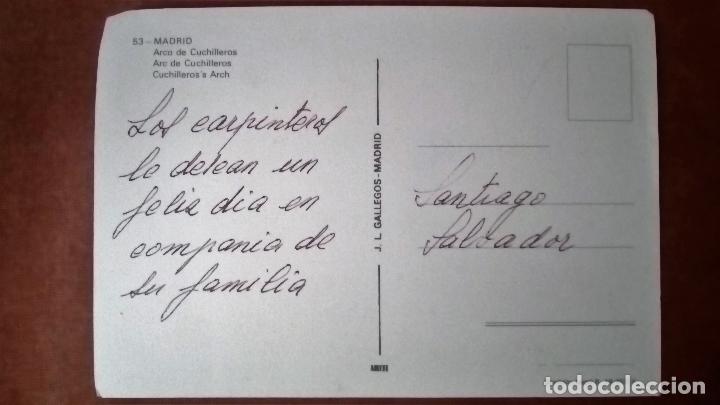 53 - MADRID
Arco de Cuchilleros
Arc de Cuchilleros
Cuchilleros's Arch
Los carpinteros
le desean un
feliz dia en
compania de
su familia
J. L. GALLEGOS - MADRID
Santiago
Salvador
todocoleccion